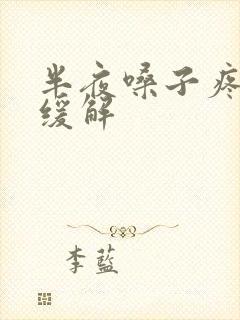 半夜嗓子疼
缓解
李蓝